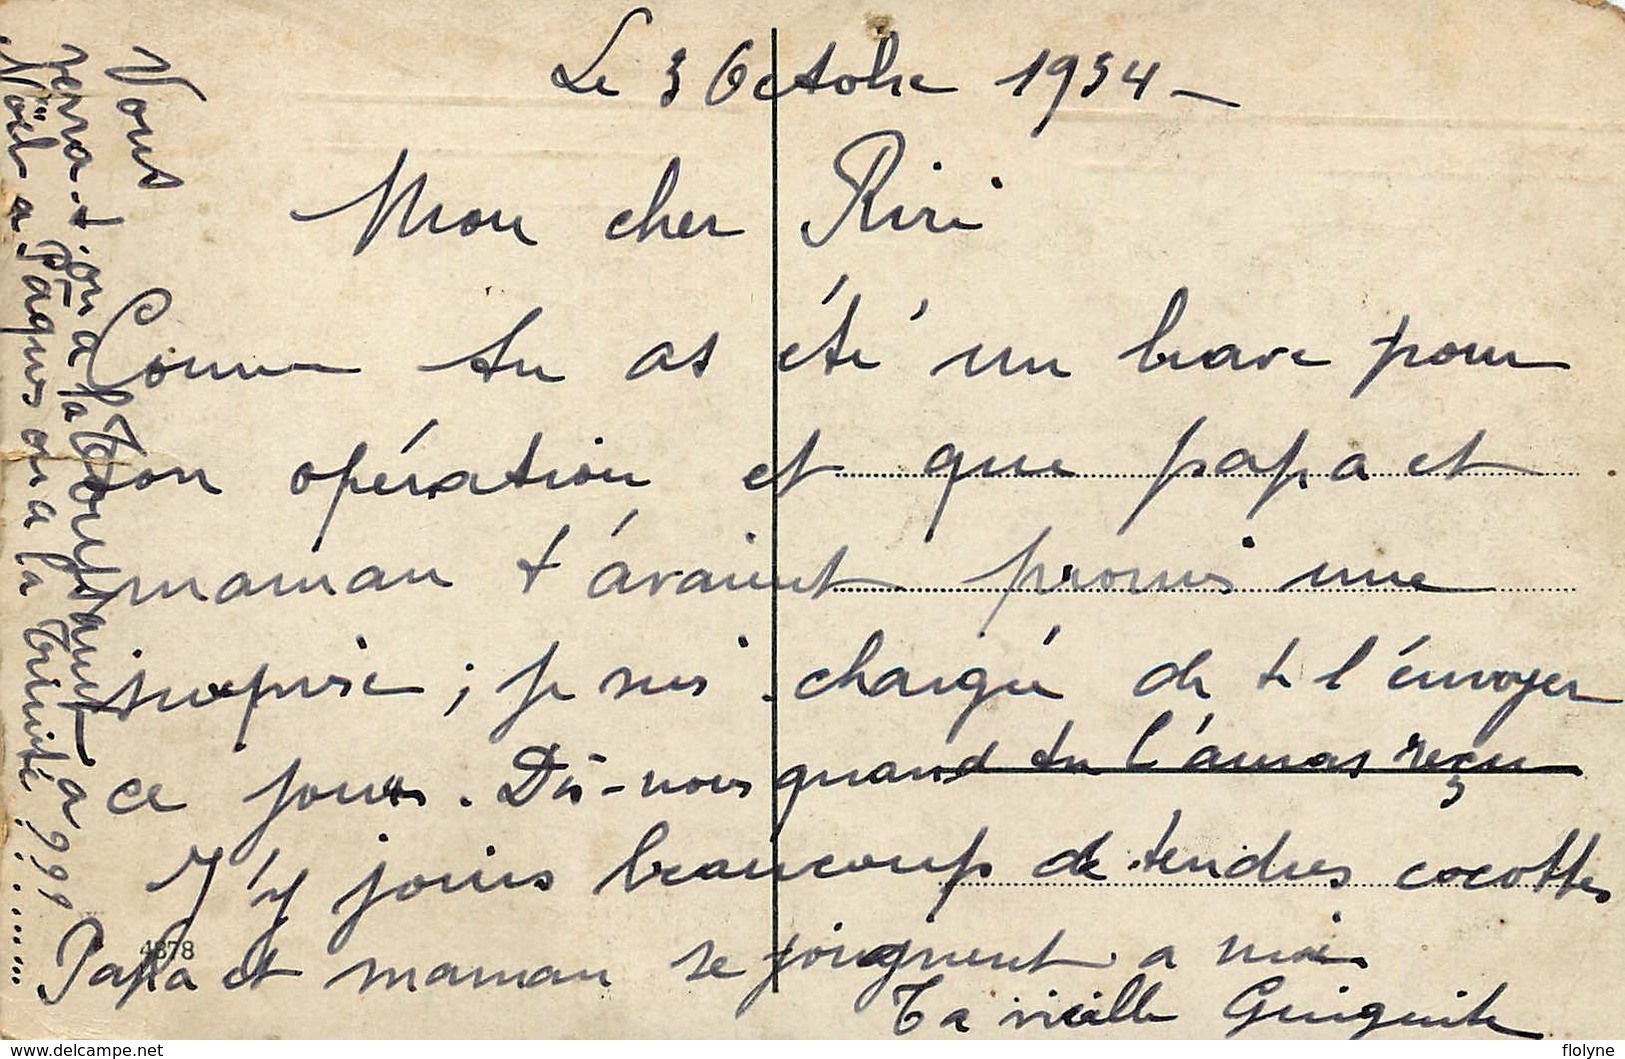 Le 3 Octobre 1934 -
Mon cher Riri
Comme tu as été un brave pour
ton opération et que papa et
maman t'avaient promis une
surprise ; je suis chargée de te l'envoyer
ce jours. Dis-nous quand tu l'auras reçu
J'y joins beaucoup de tendres cocottes
Papa et maman se joignent a moi
Ta vieille Guiguite
Vous
verra-t-on à la Toussaint à
Noël a Pâques ou a la Trinité ???
4878
delcampe.net
flolyne